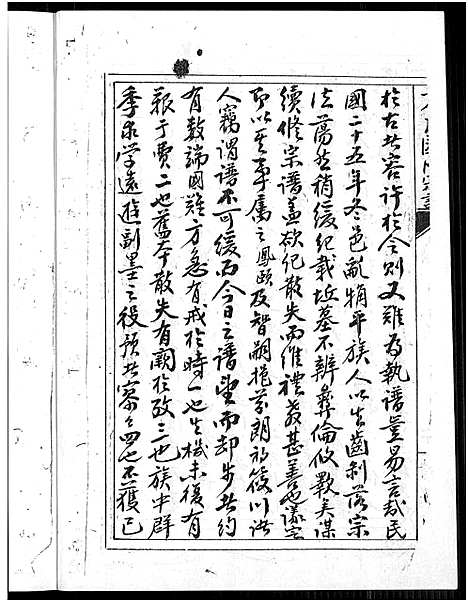 於古者容許於今則又難為執譜豈易言哉民
國二十五年冬邑亂稍平族人以生齒剝落宗
法蕩然稍緩紀載坵墓不辨彝倫攸斁矣謀
續修宗譜蓋欲紀散失而維禮教甚善也議定
即以其事屬之鳳頤及智嗣挹芬朗初筱川諸
人竊謂譜不可緩而今日之譜望而却步者約
有數端國難方急有戒於時一也生機未復有
艱于費二也舊本散失有闕於攷三也族中群
季求學遠遊副墨之役預者寥々四也不獲已